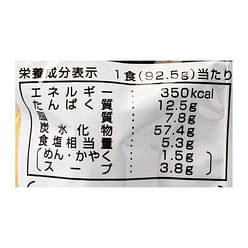 栄養成分表示 1食(92.5g)当たり
エネルギー 350kcal
たんぱく質 12.5g
脂質 7.8g
炭水化物 57.4g
食塩相当量 5.3g
(めん・かやく 1.5g)
(スープ 3.8g)